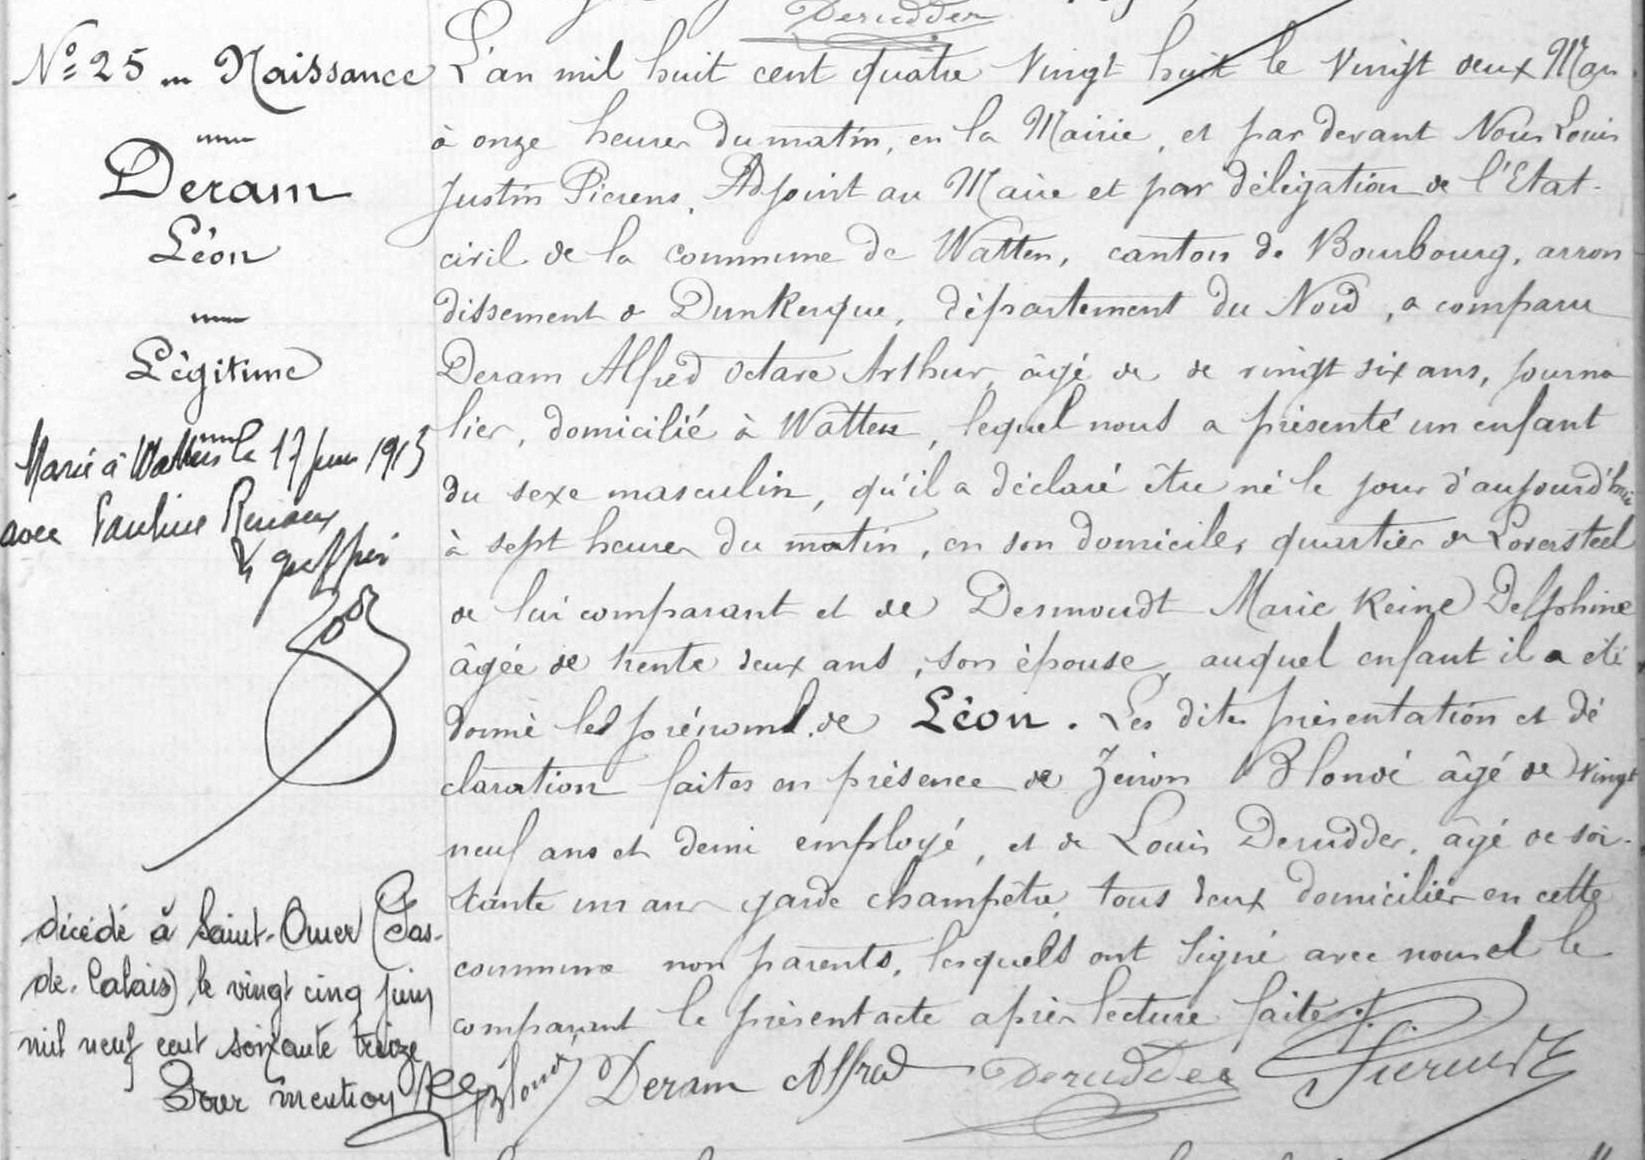 Derudder
N° 25 Naissance
Deram
Léon
Légitime
Marié à Watten le 17 juin 1913
avec Pauline
décédé à Saint-Omer (Pas-
de-Calais) le vingt cinq juin
mil neuf cent soixante treize
Pour mention
L'an mil huit cent quatre vingt huit le vingt deux Mars
à onze heures du matin, en la Mairie, et par devant Nous Louis
Justin Pierens, Adjoint au Maire et par délégation de l'Etat-
civil de la commune de Watten, canton de Bourbourg, arron
dissement de Dunkerque, département du Nord, a comparu
Deram Alfred Octave Arthur, âgé de de vingt six ans, journa
lier, domicilié à Watten, lequel nous a présenté un enfant
du sexe masculin, qu'il a déclaré être né le jour d'aujourd'hui
à sept heures du matin, en son domicile, quartier de Loversteel
de lui comparant et de Desmoudt Marie Reine Delphine
âgée de trente deux ans, son épouse, auquel enfant il a été
donné les prénoms de Léon. Les dites présentation et dé
claration faites en présence de Zénon Blondé âgé de vingt
neuf ans et demi employé, et de Louis Derudder, âgé de soi-
xante un ans garde champêtre, tous deux domiciliés en cette
commune non parents, lesquels ont signé avec nous et le
comparant le présent acte après lecture faite.
Blondé Deram Alfred Derudder Pierens